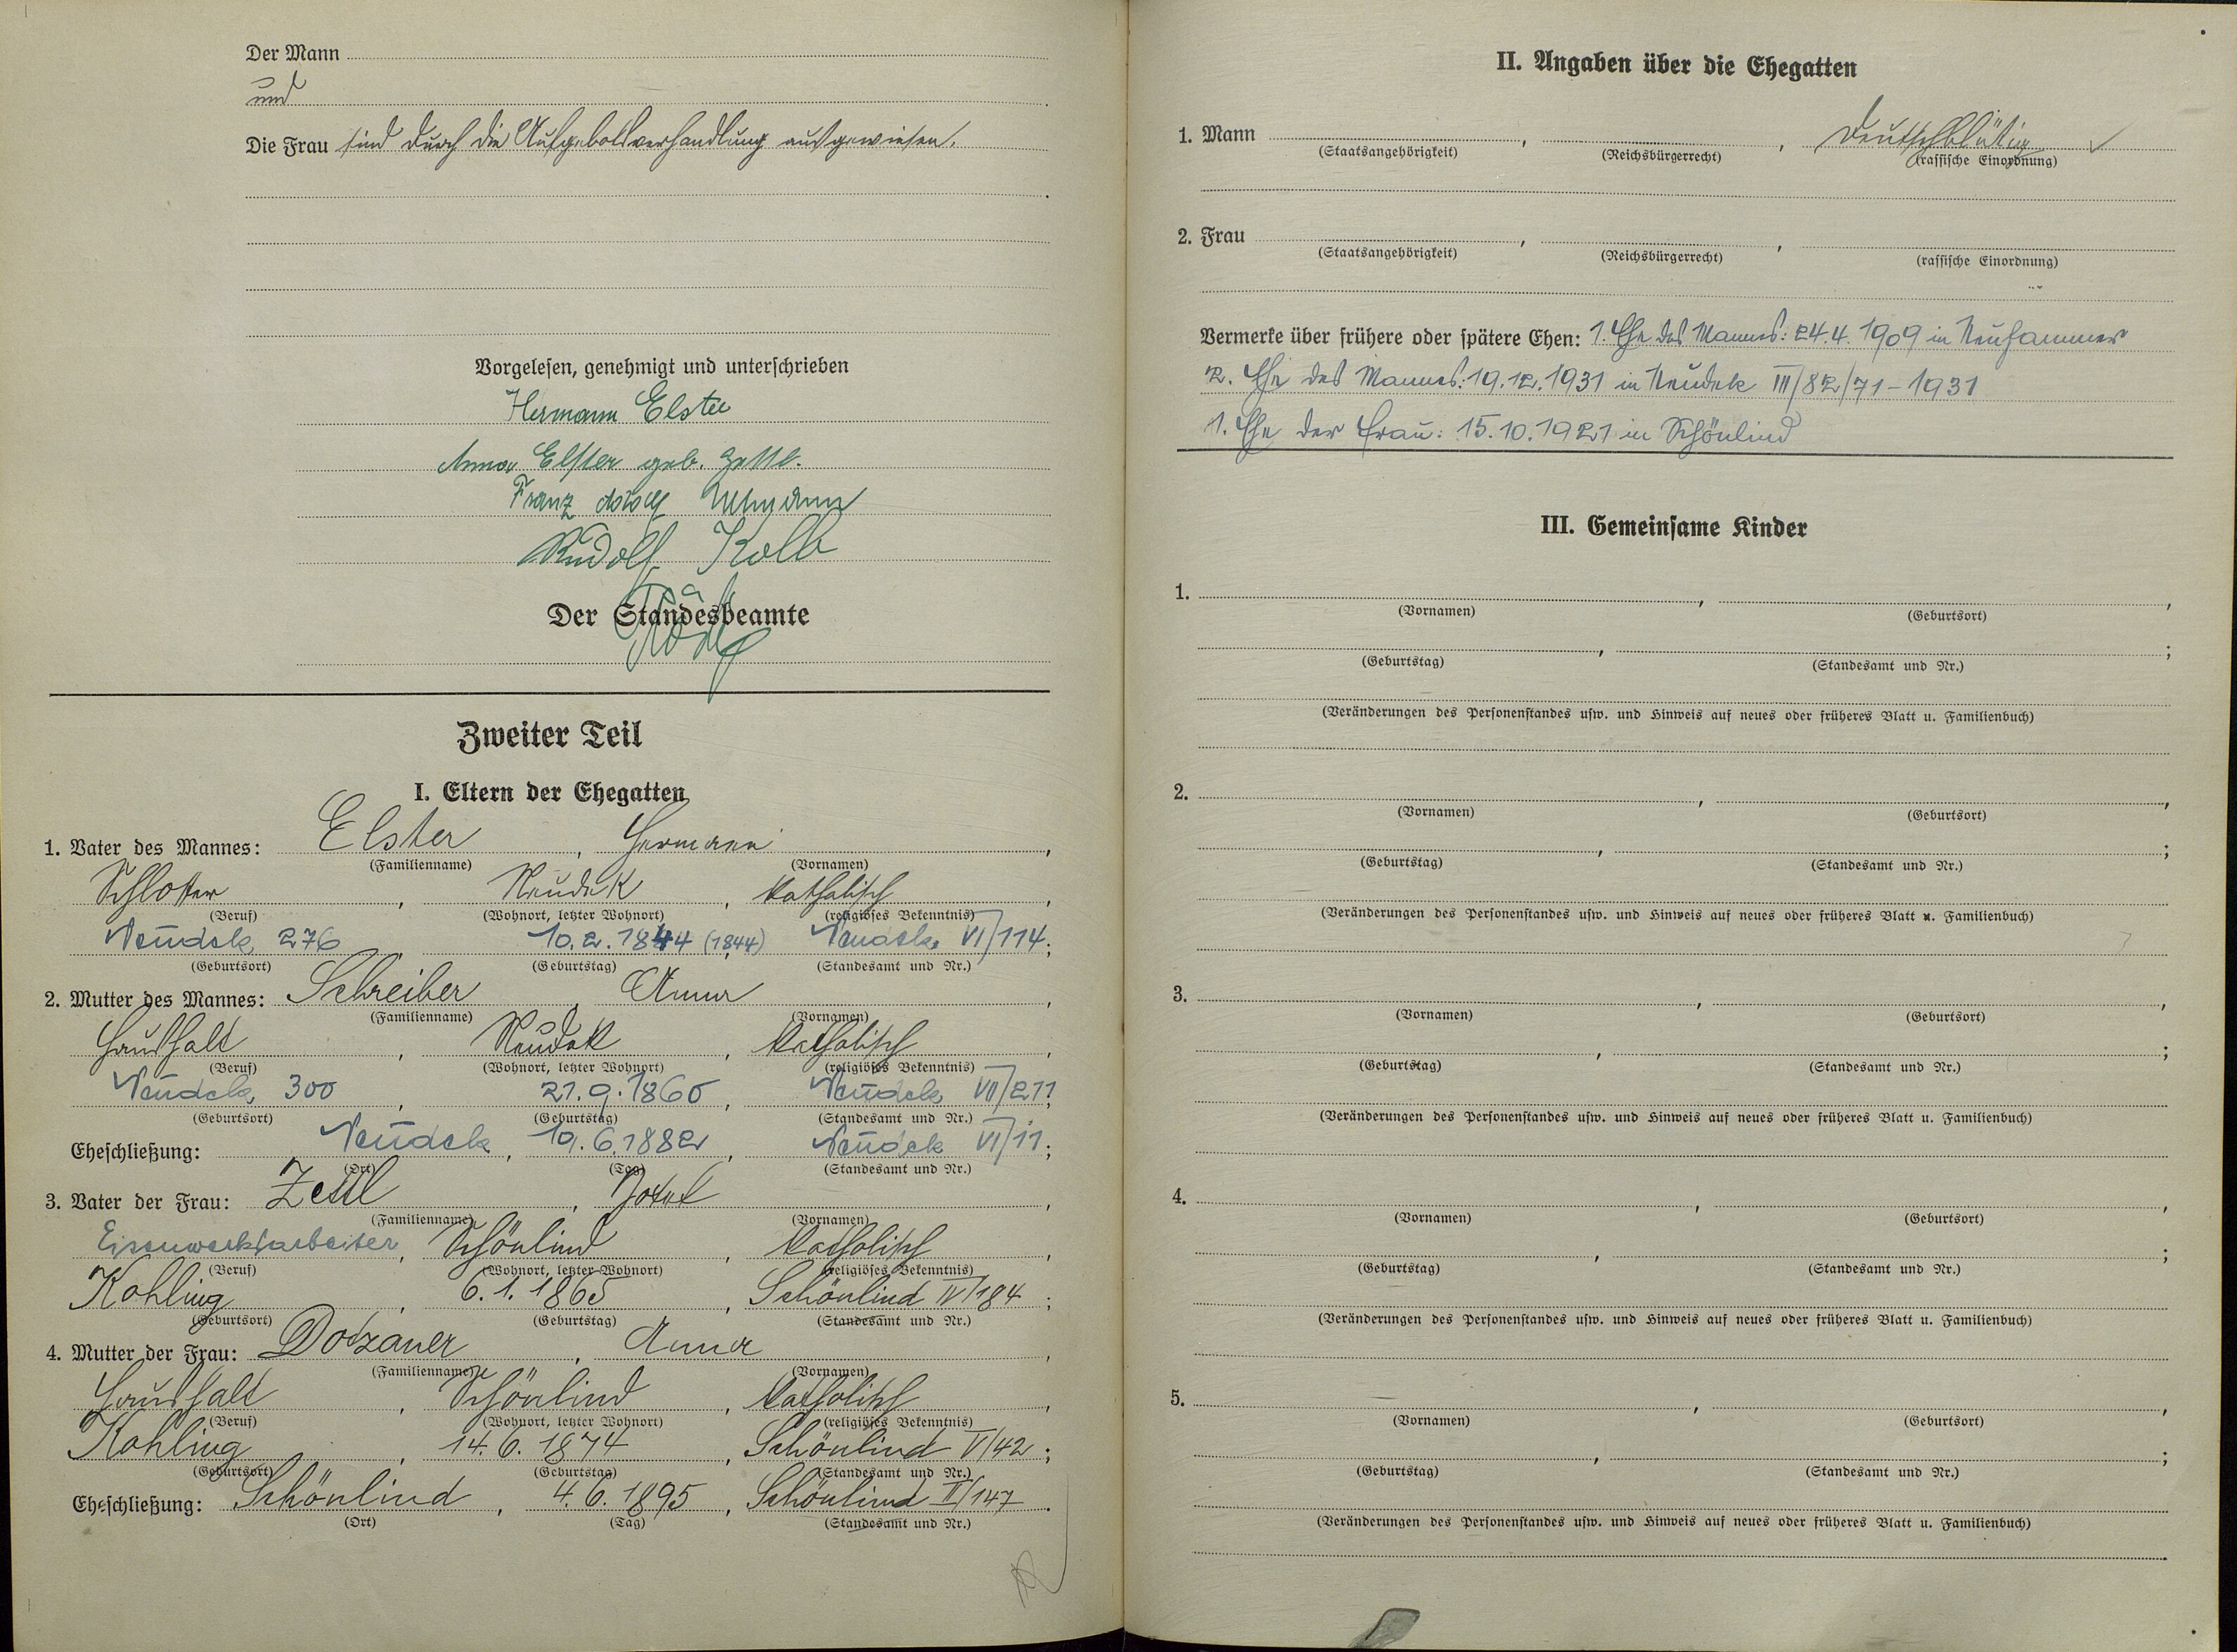 Der Mann
und
Die Frau sind durch die Aufgebotsverhandlung ausgewiesen.
Vorgelesen, genehmigt und unterschrieben
Hermann Elster
Anna Elster geb. Zettl.
Franz Adolf Ullmann
Rudolf Kolb
Der Standesbeamte
Zweiter Teil
I. Eltern der Ehegatten
1. Vater des Mannes: Elster, Hermann,
(Familienname) (Vornamen)
Schlosser, Neudek, katholisch,
(Beruf) (Wohnort, letzter Wohnort) (religiöses Bekenntnis)
Neudek 276, 10.2.1844 (1844), Neudek VI/114;
(Geburtsort) (Geburtstag) (Standesamt und Nr.)
2. Mutter des Mannes: Schreiber, Anna,
(Familienname) (Vornamen)
Haushalt, Neudek, katholisch,
(Beruf) (Wohnort, letzter Wohnort) (religiöses Bekenntnis)
Neudek 300, 21.9.1860, Neudek VII/211;
(Geburtsort) (Geburtstag) (Standesamt und Nr.)
Eheschließung: Neudek, 10.6.1882, Neudek VI/11;
(Ort) (Tag) (Standesamt und Nr.)
3. Vater der Frau: Zettl, Josef,
(Familienname) (Vornamen)
Eisenwerksarbeiter, Schönlind, katholisch,
(Beruf) (Wohnort, letzter Wohnort) (religiöses Bekenntnis)
Kohling, 6.1.1865, Schönlind IV/184;
(Geburtsort) (Geburtstag) (Standesamt und Nr.)
4. Mutter der Frau: Dotzauer, Anna,
(Familienname) (Vornamen)
Haushalt, Schönlind, katholisch,
(Beruf) (Wohnort, letzter Wohnort) (religiöses Bekenntnis)
Kohling, 14.6.1874, Schönlind V/42;
(Geburtsort) (Geburtstag) (Standesamt und Nr.)
Eheschließung: Schönlind, 4.6.1895, Schönlind II/147.
(Ort) (Tag) (Standesamt und Nr.)
II. Angaben über die Ehegatten
1. Mann , , Deutschblütig
(Staatsangehörigkeit) (Reichsbürgerrecht) (rassische Einordnung)
2. Frau , ,
(Staatsangehörigkeit) (Reichsbürgerrecht) (rassische Einordnung)
Vermerke über frühere oder spätere Ehen: 1. Ehe des Mannes: 24.4.1909 in Neuhammer
2. Ehe des Mannes: 19.12.1931 in Neudek III/82/71-1931
1. Ehe der Frau: 15.10.1921 in Schönlind
III. Gemeinsame Kinder
1. , ,
(Vornamen) (Geburtsort)
, ;
(Geburtstag) (Standesamt und Nr.)
(Veränderungen des Personenstandes usw. und Hinweis auf neues oder früheres Blatt u. Familienbuch)
2. , ,
(Vornamen) (Geburtsort)
, ;
(Geburtstag) (Standesamt und Nr.)
(Veränderungen des Personenstandes usw. und Hinweis auf neues oder früheres Blatt u. Familienbuch)
3. , ,
(Vornamen) (Geburtsort)
, ;
(Geburtstag) (Standesamt und Nr.)
(Veränderungen des Personenstandes usw. und Hinweis auf neues oder früheres Blatt u. Familienbuch)
4. , ,
(Vornamen) (Geburtsort)
, ;
(Geburtstag) (Standesamt und Nr.)
(Veränderungen des Personenstandes usw. und Hinweis auf neues oder früheres Blatt u. Familienbuch)
5. , ,
(Vornamen) (Geburtsort)
, ;
(Geburtstag) (Standesamt und Nr.)
(Veränderungen des Personenstandes usw. und Hinweis auf neues oder früheres Blatt u. Familienbuch)